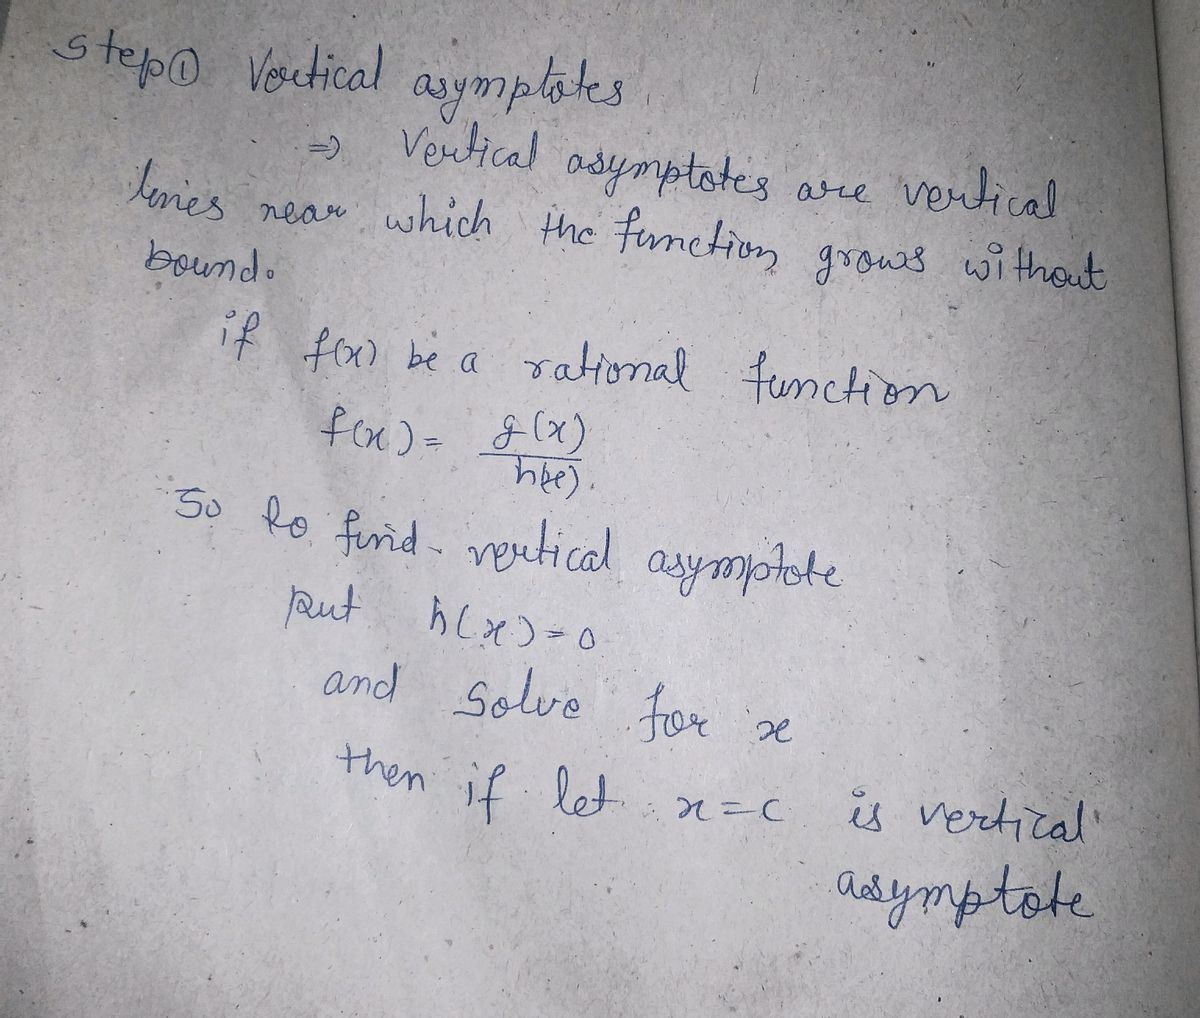 step① Vertical asymptotes
⇒ Vertical asymptotes are vertical
lines near which the function grows without
bound.
if f(x) be a rational function
f(x) = g(x)
h(x)
So to find vertical asymptote
put h(x)=0
and solve for x
then if let x=c is vertical
asymptote